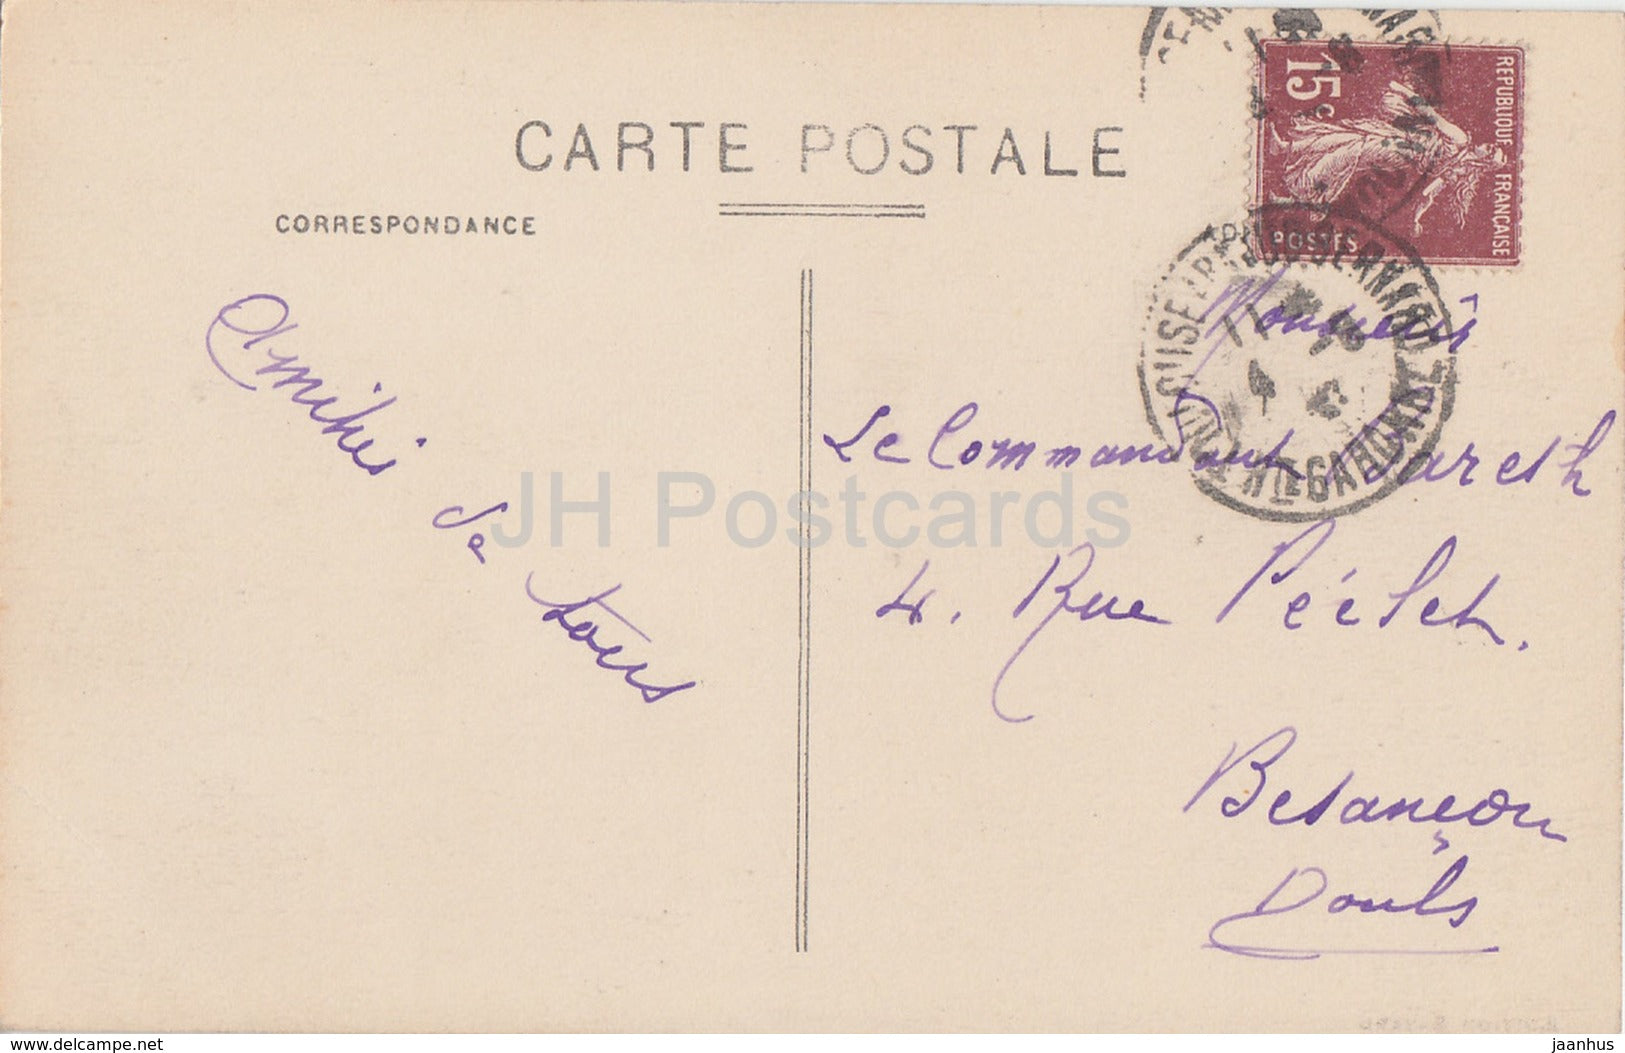 CARTE POSTALE
CORRESPONDANCE
15c
REPUBLIQUE FRANÇAISE
POSTES
Amitiés
de
tous
Monsieur
Le Commandant
4. Rue
Besançon
Doubs
GARONNE
JH Postcards
www.delcampe.net
jaanhus